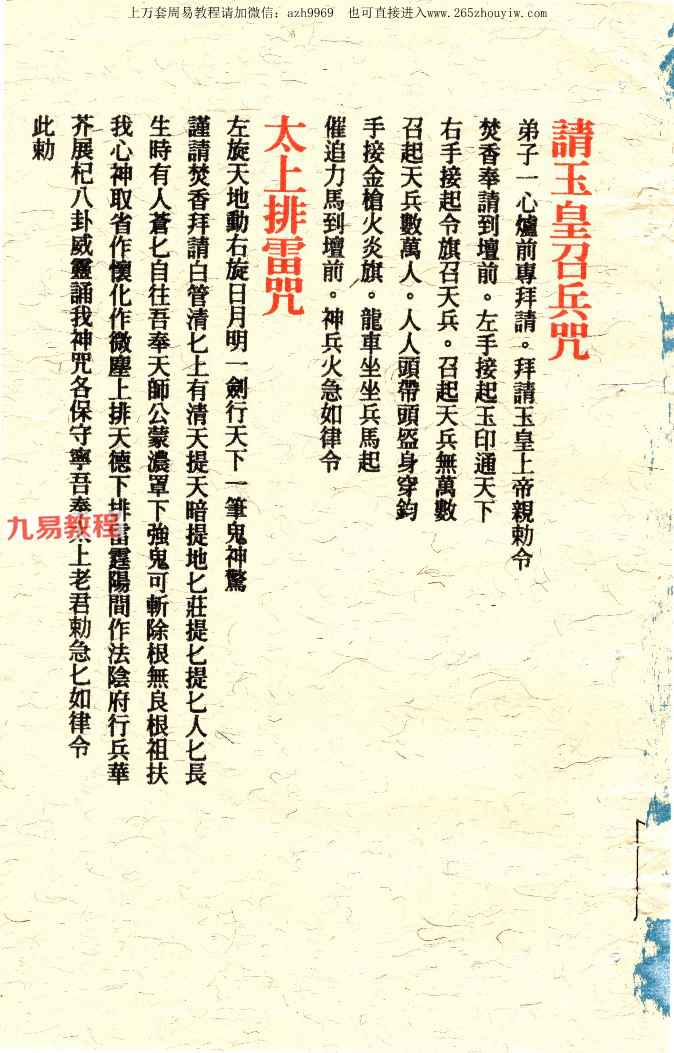 上万套周易教程请加微信：azh9969 也可直接进入www.265zhouyiw.com
請玉皇召兵咒
弟子一心爐前專拜請。拜請玉皇上帝親勅令
焚香奉請到壇前。左手接起玉印通天下
右手接起令旗召天兵。召起天兵無萬數
召起天兵數萬人。人人頭帶頭盔身穿鈞
手接金槍火炎旗。龍車坐坐兵馬起
催追力馬到壇前。神兵火急如律令
太上排雷咒
左旋天地動右旋日月明一劍行天下一筆鬼神驚
謹請焚香拜請白管清匕上有清天提天暗提地匕莊提匕提匕人匕長
生時有人蒼匕自往吾奉天師公蒙濃罩下強鬼可斬除根無良根祖扶
我心神取省作懷化作微塵上排天德下排雷霆陽間作法陰府行兵華
芥展杞八卦威靈誦我神咒各保守寧吾奉上老君勅急匕如律令
此勅
九易教程